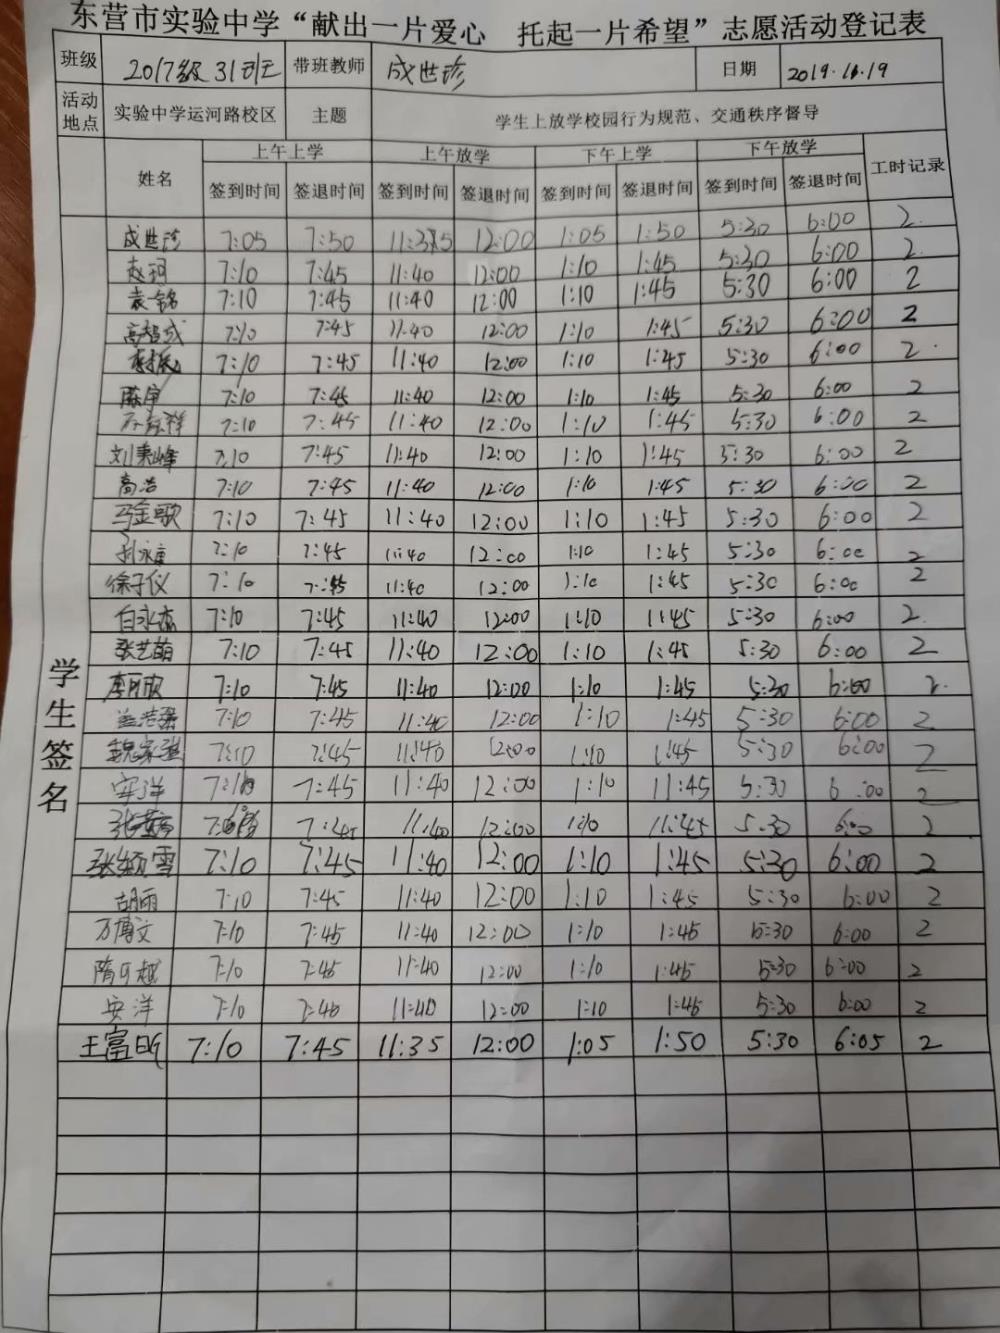 东营市实验中学“献出一片爱心 托起一片希望”志愿活动登记表
班级 2017级31班 带班教师 成世珍 日期 2019.11.19
活动地点 实验中学运河路校区 主题 学生上放学校园行为规范、交通秩序督导
上午上学 上午放学 下午上学 下午放学 工时记录
姓名 签到时间 签退时间 签到时间 签退时间 签到时间 签退时间 签到时间 签退时间
学生签名
成世珍 7:05 7:50 12:00 1:05 1:50 5:30 6:00 2
赵珂 7:10 7:45 11:40 12:00 1:10 1:45 5:30 6:00 2
袁铭 7:10 7:45 11:40 12:00 1:10 1:45 5:30 6:00 2
高超 7:10 7:45 11:40 12:00 1:10 1:45 5:30 6:00 2
7:10 7:45 11:40 12:00 1:10 1:45 5:30 6:00 2
7:10 7:45 11:40 12:00 1:10 1:45 5:30 6:00 2
7:10 7:45 11:40 12:00 1:10 1:45 5:30 6:00 2
刘秉峰 7:10 7:45 11:40 12:00 1:10 1:45 5:30 6:00 2
高浩 7:10 7:45 11:40 12:00 1:10 1:45 5:30 6:00 2
马金歌 7:10 7:45 11:40 12:00 1:10 1:45 5:30 6:00 2
7:10 7:45 11:40 12:00 1:10 1:45 5:30 6:00 2
徐子仪 7:10 7:45 11:40 12:00 1:10 1:45 5:30 6:00 2
7:10 7:45 11:40 12:00 1:10 11:45 5:30 6:00 2
张艺萌 7:10 7:45 11:40 12:00 1:10 1:45 5:30 6:00 2
李可欣 7:10 7:45 11:40 12:00 1:10 1:45 5:30 6:00 2
7:10 7:45 11:40 12:00 1:10 1:45 5:30 6:00 2
魏家琪 7:10 7:45 11:40 12:00 1:10 1:45 5:30 6:00 2
安洋 7:45 11:40 12:00 1:10 11:45 5:30 6:00 2
7:45 11:40 12:00 1:10 11:45 5:30 6:00 2
张颖雪 7:10 7:45 11:40 12:00 1:10 1:45 5:30 6:00 2
胡雨 7:10 7:45 11:40 12:00 1:10 1:45 5:30 6:00 2
万博文 7:10 7:45 11:40 12:00 1:10 1:45 5:30 6:00 2
隋可越 7:10 7:45 11:40 12:00 1:10 1:45 5:30 6:00 2
安洋 7:10 7:45 11:40 12:00 1:10 1:45 5:30 6:00 2
王富昕 7:10 7:45 11:35 12:00 1:05 1:50 5:30 6:05 2